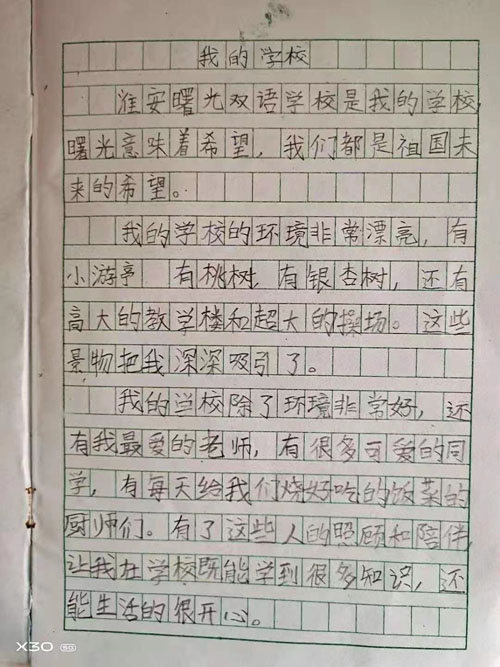 我的学校
淮安曙光双语学校是我的学校,
曙光意味着希望，我们都是祖国未
来的希望。
我的学校的环境非常漂亮，有
小游亭 有桃树，有银杏树，还有
高大的教学楼和超大的操场。这些
景物把我深深吸引了。
我的学校除了环境非常好，还
有我最爱的老师，有很多可爱的同
学，有每天给我们烧好吃的饭菜的
厨师们。有了这些人的照顾和陪伴，
让我在学校既能学到很多知识，还
能生活的很开心。
X30